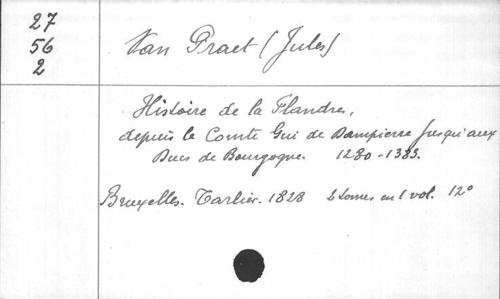 27
56
2
Van Praet (Jules)
Histoire de la Flandres,
depuis le Comte Gui de Dampierre jusqu'aux
Ducs de Bourgogne. 1280-1383.
Bruxelles. Tarlier. 1828 2 tomes en 1 vol. 12°